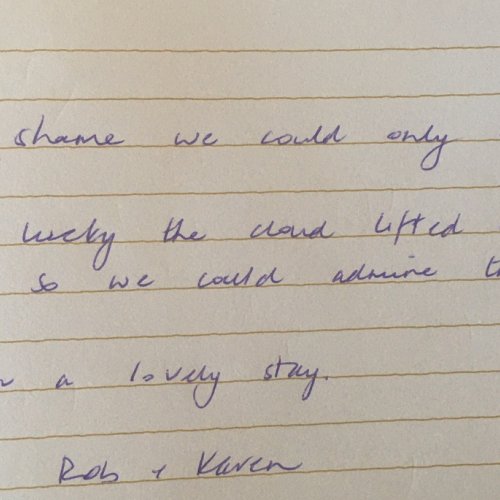 shame we could only
lucky the cloud lifted
so we could admire
a lovely stay.
Rob + Karen